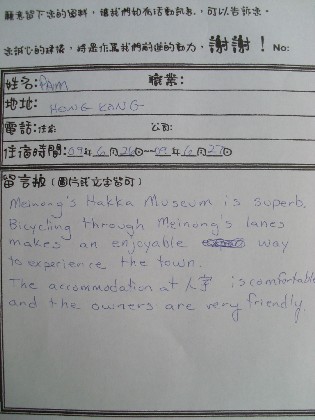 願意留下您的資料，讓我們如有活動訊息，可以告訴您。
您誠心的建議，將是作為我們前進的動力，謝謝！ No:
姓名: PAM 職業:
地址: HONG KONG
電話:住家 公司:
住宿時間: 09年6月26日—09年6月27日
留言板(圖片或文字皆可)
Meinong's Hakka Museum is superb.
Bicycling through Meinong's lanes
makes an enjoyable way
to experience the town.
The accommodation at 人字 is comfortable
and the owners are very friendly.